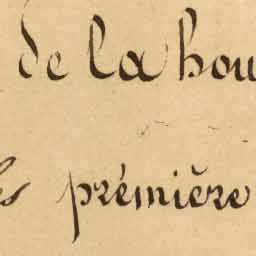 de la hou
es prémière